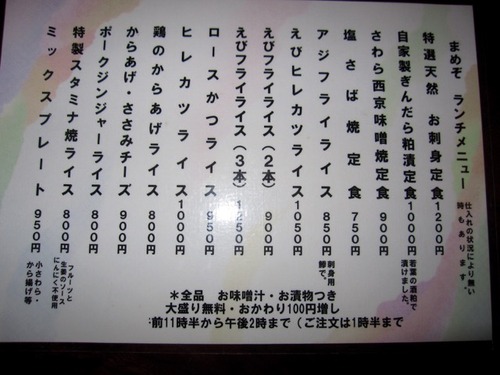 まめぞ ランチメニュー
仕入れの状況により無い
時もあります。
特選天然 お刺身定食 1200円
自家製ぎんだら粕漬定食 1000円
若葉の酒粕で
漬けました。
さわら西京味噌焼定食 900円
塩さば焼定食 750円
アジフライライス 850円
刺身用
鯵で。
えびヒレカツライス 1050円
えびフライライス(2本) 900円
えびフライライス(3本) 1250円
ロースかつライス 950円
ヒレカツライス 1000円
鶏のからあげライス 800円
からあげ・ささみチーズ 900円
ポークジンジャーライス 800円
特製スタミナ焼ライス 800円
フルーツと
生姜のソース
にんにく不使用
ミックスプレート 950円
小さわら・
から揚げ等
*全品 お味噌汁・お漬物つき
大盛り無料・おかわり100円増し
前11時半から午後2時まで(ご注文は1時半まで